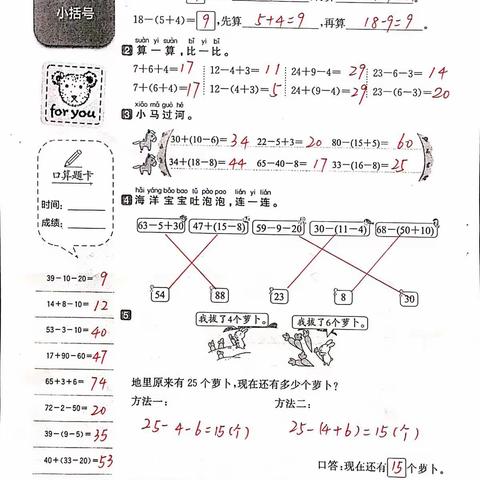 小括号
18-(5+4)=9,先算 5+4=9,再算 18-9=9
suàn yi suàn bǐ yi bǐ
2 算一算,比一比。
7+6+4=17 12-4+3=11 24+9-4=29 23-6-3=14
7+(6+4)=17 12-(4+3)=5 24+(9-4)=29 23-(6-3)=20
xiǎo mǎ guò hé
3 小马过河。
30+(10-6)=34 22-5+3=20 80-(15+5)=60
34+(18-8)=44 65-40-8=17 33-(16-8)=25
for you
口算题卡
时间:
成绩:
hǎi yáng bǎo bao tǔ pào pao lián yi lián
4 海洋宝宝吐泡泡,连一连。
63-5+30 47+(15-8) 59-9-20 30-(11-4) 68-(50+10)
54 88 23 8 30
39-10-20=9
14+8-10=12
53-3-10=40
17+90-60=47
65+3+6=74
72-2-50=20
39-(9-5)=35
40+(33-20)=53
5
我拔了4个萝卜。 我拔了6个萝卜。
地里原来有25个萝卜,现在还有多少个萝卜?
方法一: 方法二:
25-4-6=15(个) 25-(4+6)=15(个)
口答:现在还有15个萝卜。